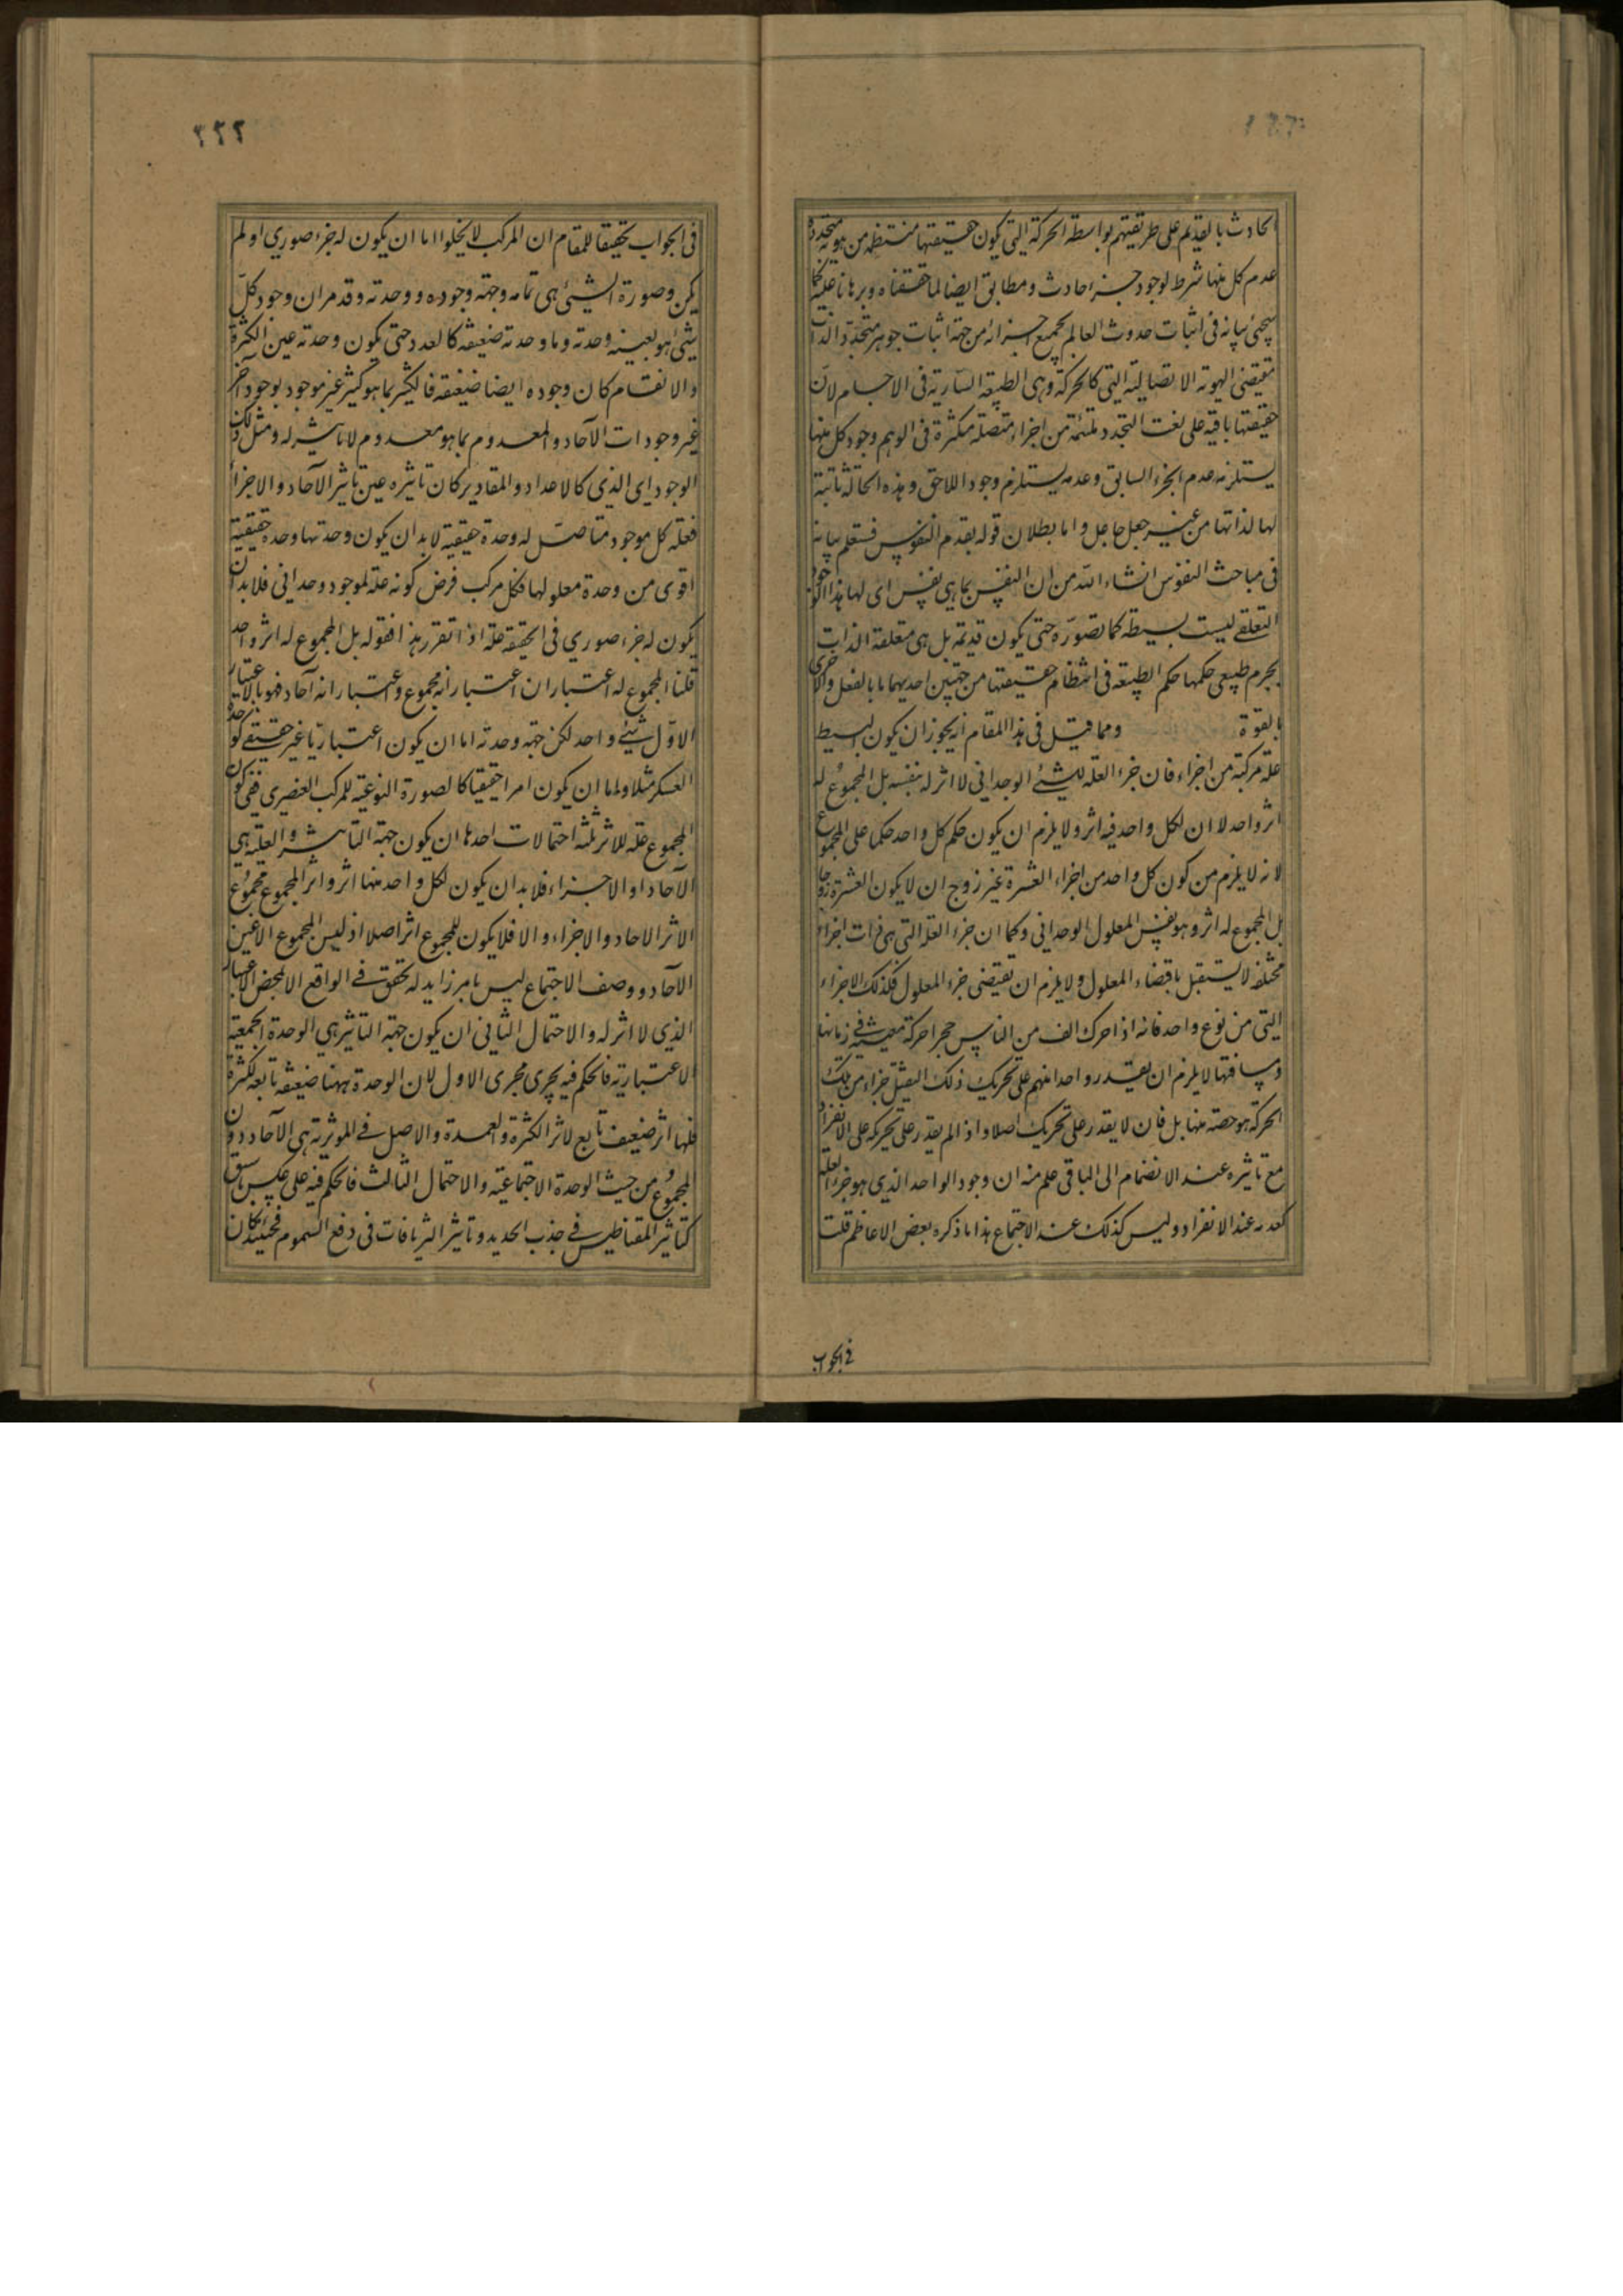 الحادث بالقديم على طريقتهم بواسطة الحركة التي يكون حقيقتها منتظمة من هوية متجددة
عدم كل منها شرط لوجود جزء حادث ومطابق ايضا لما حققناه وبرهانا عليه كما
سيجئ بيانه في اثبات حدوث العالم بجميع اجزائه من جهة اثبات جوهر متجددة الذات
مقتضى الهوية الاتصالية التي كالحركة وهى الطبيعة السارية في الاجسام لان
حقيقتها باقية على نعت التجدد ملتئمة من اجزاء متصلة متكثرة في الوهم وجود كل منها
يستلزم عدم الجزء السابق وعدمه يستلزم وجود اللاحق وهذه الحالة ثابتة
لها لذاتها من غير جعل جاعل واما بطلان قوله بقدم النفوس فستعلم بيانه
في مباحث النفوس انشاء الله من ان النفس بما هي نفس اى لها هذا الوجود
التعلقي ليست بسيطة كما تصوره حتى يكون قديمة بل هي متعلقة الذات
بجرم طبيعى حكمها حكم الطبيعة في انتظام حقيقتها من جهتين احديهما ما بالفعل والاخرى
بالقوة ومما قيل في هذا المقام انه يجوز ان يكون للبسيط
علة مركبة من اجزاء فان جزء العلة للشئ الوحداني لا اثر له بنفسه بل المجموع له
اثر واحد لا ان لكل واحد فيه اثر ولا يلزم ان يكون حكم كل واحد حكما على المجموع
لانه لا يلزم من كون كل واحد من اجزاء العشرة غير زوج ان لا يكون العشرة زوجا
بل المجموع له اثر وهو نفس المعلول الوحداني وكما ان جزء العلة التي هي ذات اجزاء
مختلفة لا يستقل باقتضاء المعلول ولا يلزم ان يقتضى جزء المعلول فكذلك الاجزاء
التي من نوع واحد فانه اذا حرك الف من الناس حجرا حركة معينة في زمانها
ومسافتها لا يلزم ان يقدر واحد منهم على تحريك ذلك الثقيل جزاء من تلك
الحركة هو حصته منها بل فان لا يقدر على تحريك اصلا واذا لم يقدر على تحريكه على الانفراد
مع تاثيره عند الانضمام الى الباقى علم منه ان وجود الواحد الذي هو جزء العلة
كعدمه عند الانفراد وليس كذلك عند الاجتماع هذا ما ذكره بعض الاعاظم قلت
في الجواب
٢٢٢
في الجواب تحقيقا للمقام ان المركب لا يخلوا اما ان يكون له جزء صوري او لم
يكن وصورة الشئ هي تمامه وجهة وجوده ووحدته وقد مر ان وجود كل
شئ هو بعينه وحدته وما وحدته ضعيفة كالعدد حتى يكون وحدته عين الكثرة
والانقسام كان وجوده ايضا ضعيفة فالكثير بما هو كثير غير موجود بوجود آخر
غير وجودات الآحاد والمعدوم بما هو معدوم لا تاثير له ومثل ذلك
الوجود اى الذي كالاعداد والمقادير كان تاثيره عين تاثير الآحاد والاجزاء
فعلة كل موجود متاصل له وحدة حقيقية لابد ان يكون وحدتها وحدة حقيقية
اقوى من وحدة معلولها فكل مركب فرض كونه علة لموجود وحداني فلا بد ان
يكون له جزء صوري في الحقيقة علة اذا تقرر هذا فقوله بل المجموع له اثر واحد
قلنا المجموع له اعتباران اعتبار انه مجموع واعتبار انه آحاد فهو بالاعتبار
الاول شئ واحد لكن جهة وحدته اما ان يكون اعتباريا غير حقيقى كوحدة
العسكر مثلا واما ان يكون امرا حقيقيا كالصورة النوعية للمركب العنصرى ففى كون
المجموع علة للاثر ثلثة احتمالات احدها ان يكون جهة التاثير والعلية هي
الآحاد او الاجزاء فلا بد ان يكون لكل واحد منها اثر واثر المجموع مجموع
الاثر الاحاد والاجزاء والا فلا يكون للمجموع اثر اصلا اذ ليس المجموع الا عين
الآحاد ووصف الاجتماع ليس بامر زايد له تحقق في الواقع الا بمحض الاعتبار
الذي لا اثر له والاحتمال الثاني ان يكون جهة التاثير هي الوحدة الجمعية
الاعتبارية فالحكم فيه يجري مجرى الاول لان الوحدة ههنا ضعيفة تابعة للكثرة
فلها اثر ضعيف تابع لاثر الكثرة والعمدة والاصل في الموثرية هي الآحاد دون
المجموع من حيث الوحدة الاجتماعية والاحتمال الثالث فالحكم فيه على عكس ما سبق
كتاثير المقناطيس في جذب الحديد وتاثير الترياقات في دفع السموم فحينئذ كان